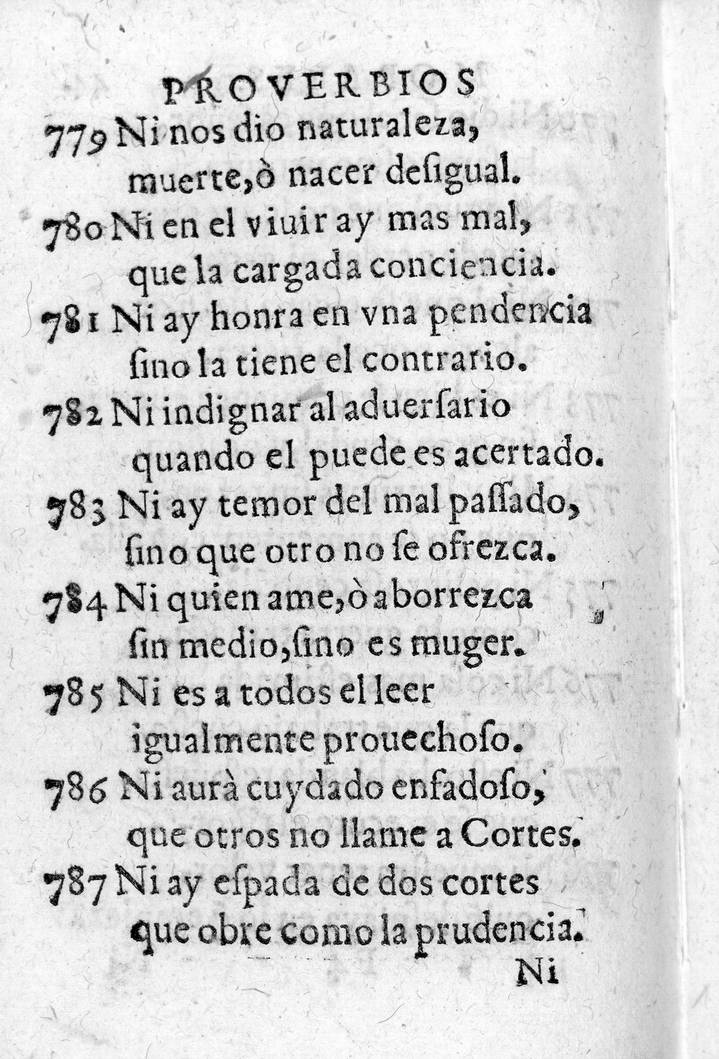 PROVERBIOS
779 Ni nos dio naturaleza,
muerte,ò nacer deſigual.
780 Ni en el viuir ay mas mal,
que la cargada conciencia.
781 Ni ay honra en vna pendencia
ſino la tiene el contrario.
782 Ni indignar al aduerſario
quando el puede es acertado.
783 Ni ay temor del mal paſſado,
ſino que otro no ſe ofrezca.
784 Ni quien ame,ò aborrezca
ſin medio,ſino es muger.
785 Ni es a todos el leer
igualmente prouechoſo.
786 Ni aurà cuydado enfadoſo,
que otros no llame a Cortes.
787 Ni ay eſpada de dos cortes
que obre como la prudencia.
Ni